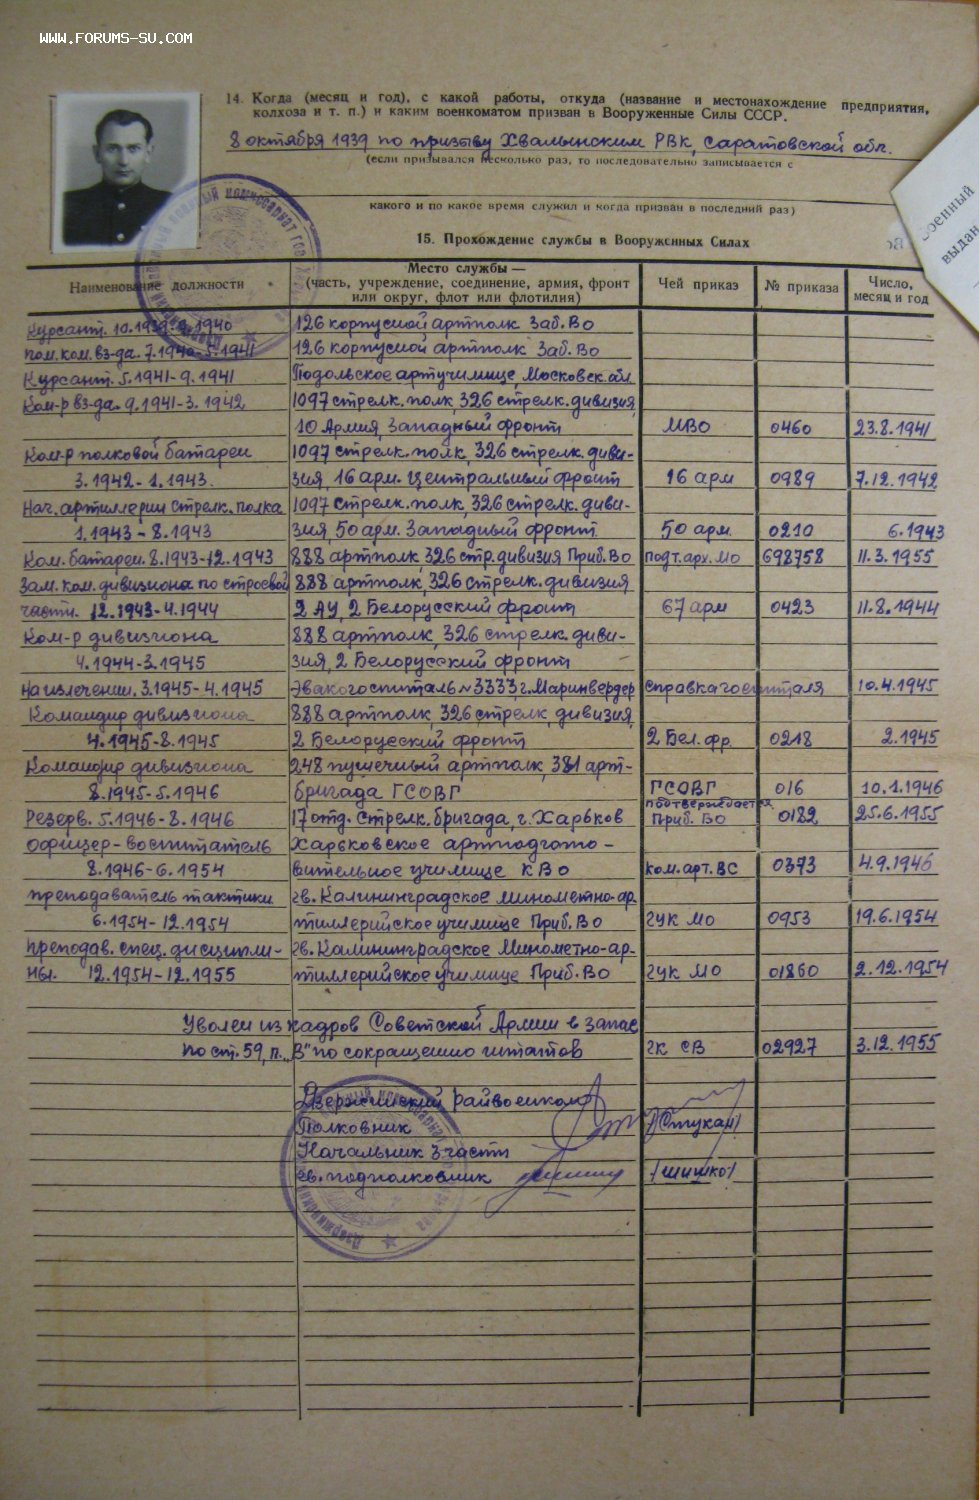 WWW.FORUMS-SU.COM
14. Когда (месяц и год), с какой работы, откуда (название и местонахождение предприятия,
колхоза и т. п.) и каким военкоматом призван в Вооруженные Силы СССР.
8 октября 1939 по призыву Хвалынским РВК, Саратовской обл.
(если призывался несколько раз, то последовательно записывается с
какого и по какое время служил и когда призван в последний раз)
Военный
выдан
15. Прохождение службы в Вооруженных Силах
Наименование должности Место службы — (часть, учреждение, соединение, армия, фронт или округ, флот или флотилия) Чей приказ № приказа Число, месяц и год
Курсант. 10.1939-9.1940 126 корпусной артполк Заб.ВО
пом.ком.вз-да. 7.1940-5.1941 126 корпусной артполк Заб.ВО
Курсант. 5.1941-9.1941 Подольское артучилище, Московск.обл
Ком-р вз-да. 9.1941-3.1942 1097 стрелк.полк, 326 стрелк.дивизия,
10 Армия, Западный фронт МВО 0460 23.8.1941
Ком-р полковой батареи 1097 стрелк.полк, 326 стрелк.диви-
3.1942-1.1943. зия, 16 арм. Центральный фронт 16 арм 0989 7.12.1942
Нач.артиллерии стрелк.полка 1097 стрелк.полк, 326 стрелк.диви-
1.1943-8.1943 зия, 50 арм. Западный фронт 50 арм. 0210 6.1943
Ком.батареи. 8.1943-12.1943 888 артполк 326 стр.дивизия Приб.ВО подт.арх.МО 698758 11.3.1955
Зам.ком.дивизиона по строевой 888 артполк, 326 стрелк.дивизия
части. 12.1943-4.1944 2 АУ, 2 Белорусский фронт 67 арм 0423 11.8.1944
Ком-р дивизиона 888 артполк, 326 стрелк.диви-
4.1944-3.1945 зия, 2 Белорусский фронт
На излечении. 3.1945-4.1945 Эвакогоспиталь №3333 г.Маринвердер справка госпиталя 10.4.1945
Командир дивизиона 888 артполк, 326 стрелк. дивизия,
4.1945-8.1945 2 Белорусский фронт 2 Бел.фр. 0218 2.1945
Командир дивизиона 248 пушечный артполк, 381 арт-
8.1945-5.1946 бригада ГСОВГ ГСОВГ 016 10.1.1946
Резерв. 5.1946-8.1946 17 отд. стрелк.бригада, г.Харьков подтверждается Приб.ВО 0182 25.6.1955
Офицер-воспитатель Харьковское артподгото-
8.1946-6.1954 вительное училище КВО ком.арт.ВС 0373 4.9.1946
преподаватель тактики гв.Калининградское минометно-ар
6.1954-12.1954 тиллерийское училище Приб.ВО ГУК МО 0953 19.6.1954
преподав.спец.дисципли- гв.Калининградское Минометно-ар-
ны. 12.1954-12.1955 тиллерийское училище Приб.ВО ГУК МО 01860 2.12.1954
Уволен из кадров Советской Армии в запас
по ст.59, п. „В" по сокращению штатов ГК СВ 02927 3.12.1955
Дзержинский райвоенком
Полковник /Стукан/
Начальник 3 части
гв.подполковник /Шишко/